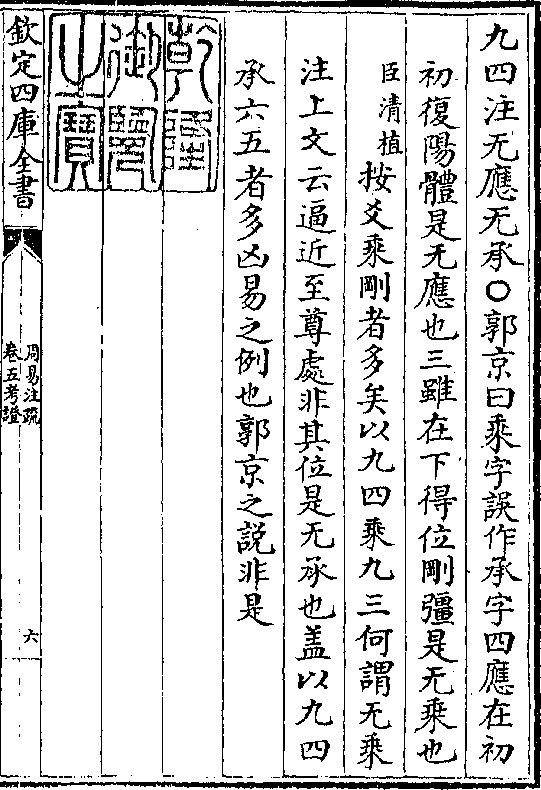 九四注无應无承○郭京曰乘字誤作承字四應在初
初復陽體是无應也三雖在下得位剛彊是无乘也
臣清植按爻乘剛者多矣以九四乘九三何謂无乘
注上文云逼近至尊處非其位是无承也盖以九四
承六五者多凶易之例也郭京之説非是
乾隆
御覽
之寶
欽定四庫全書
周易注疏
卷五考證
六